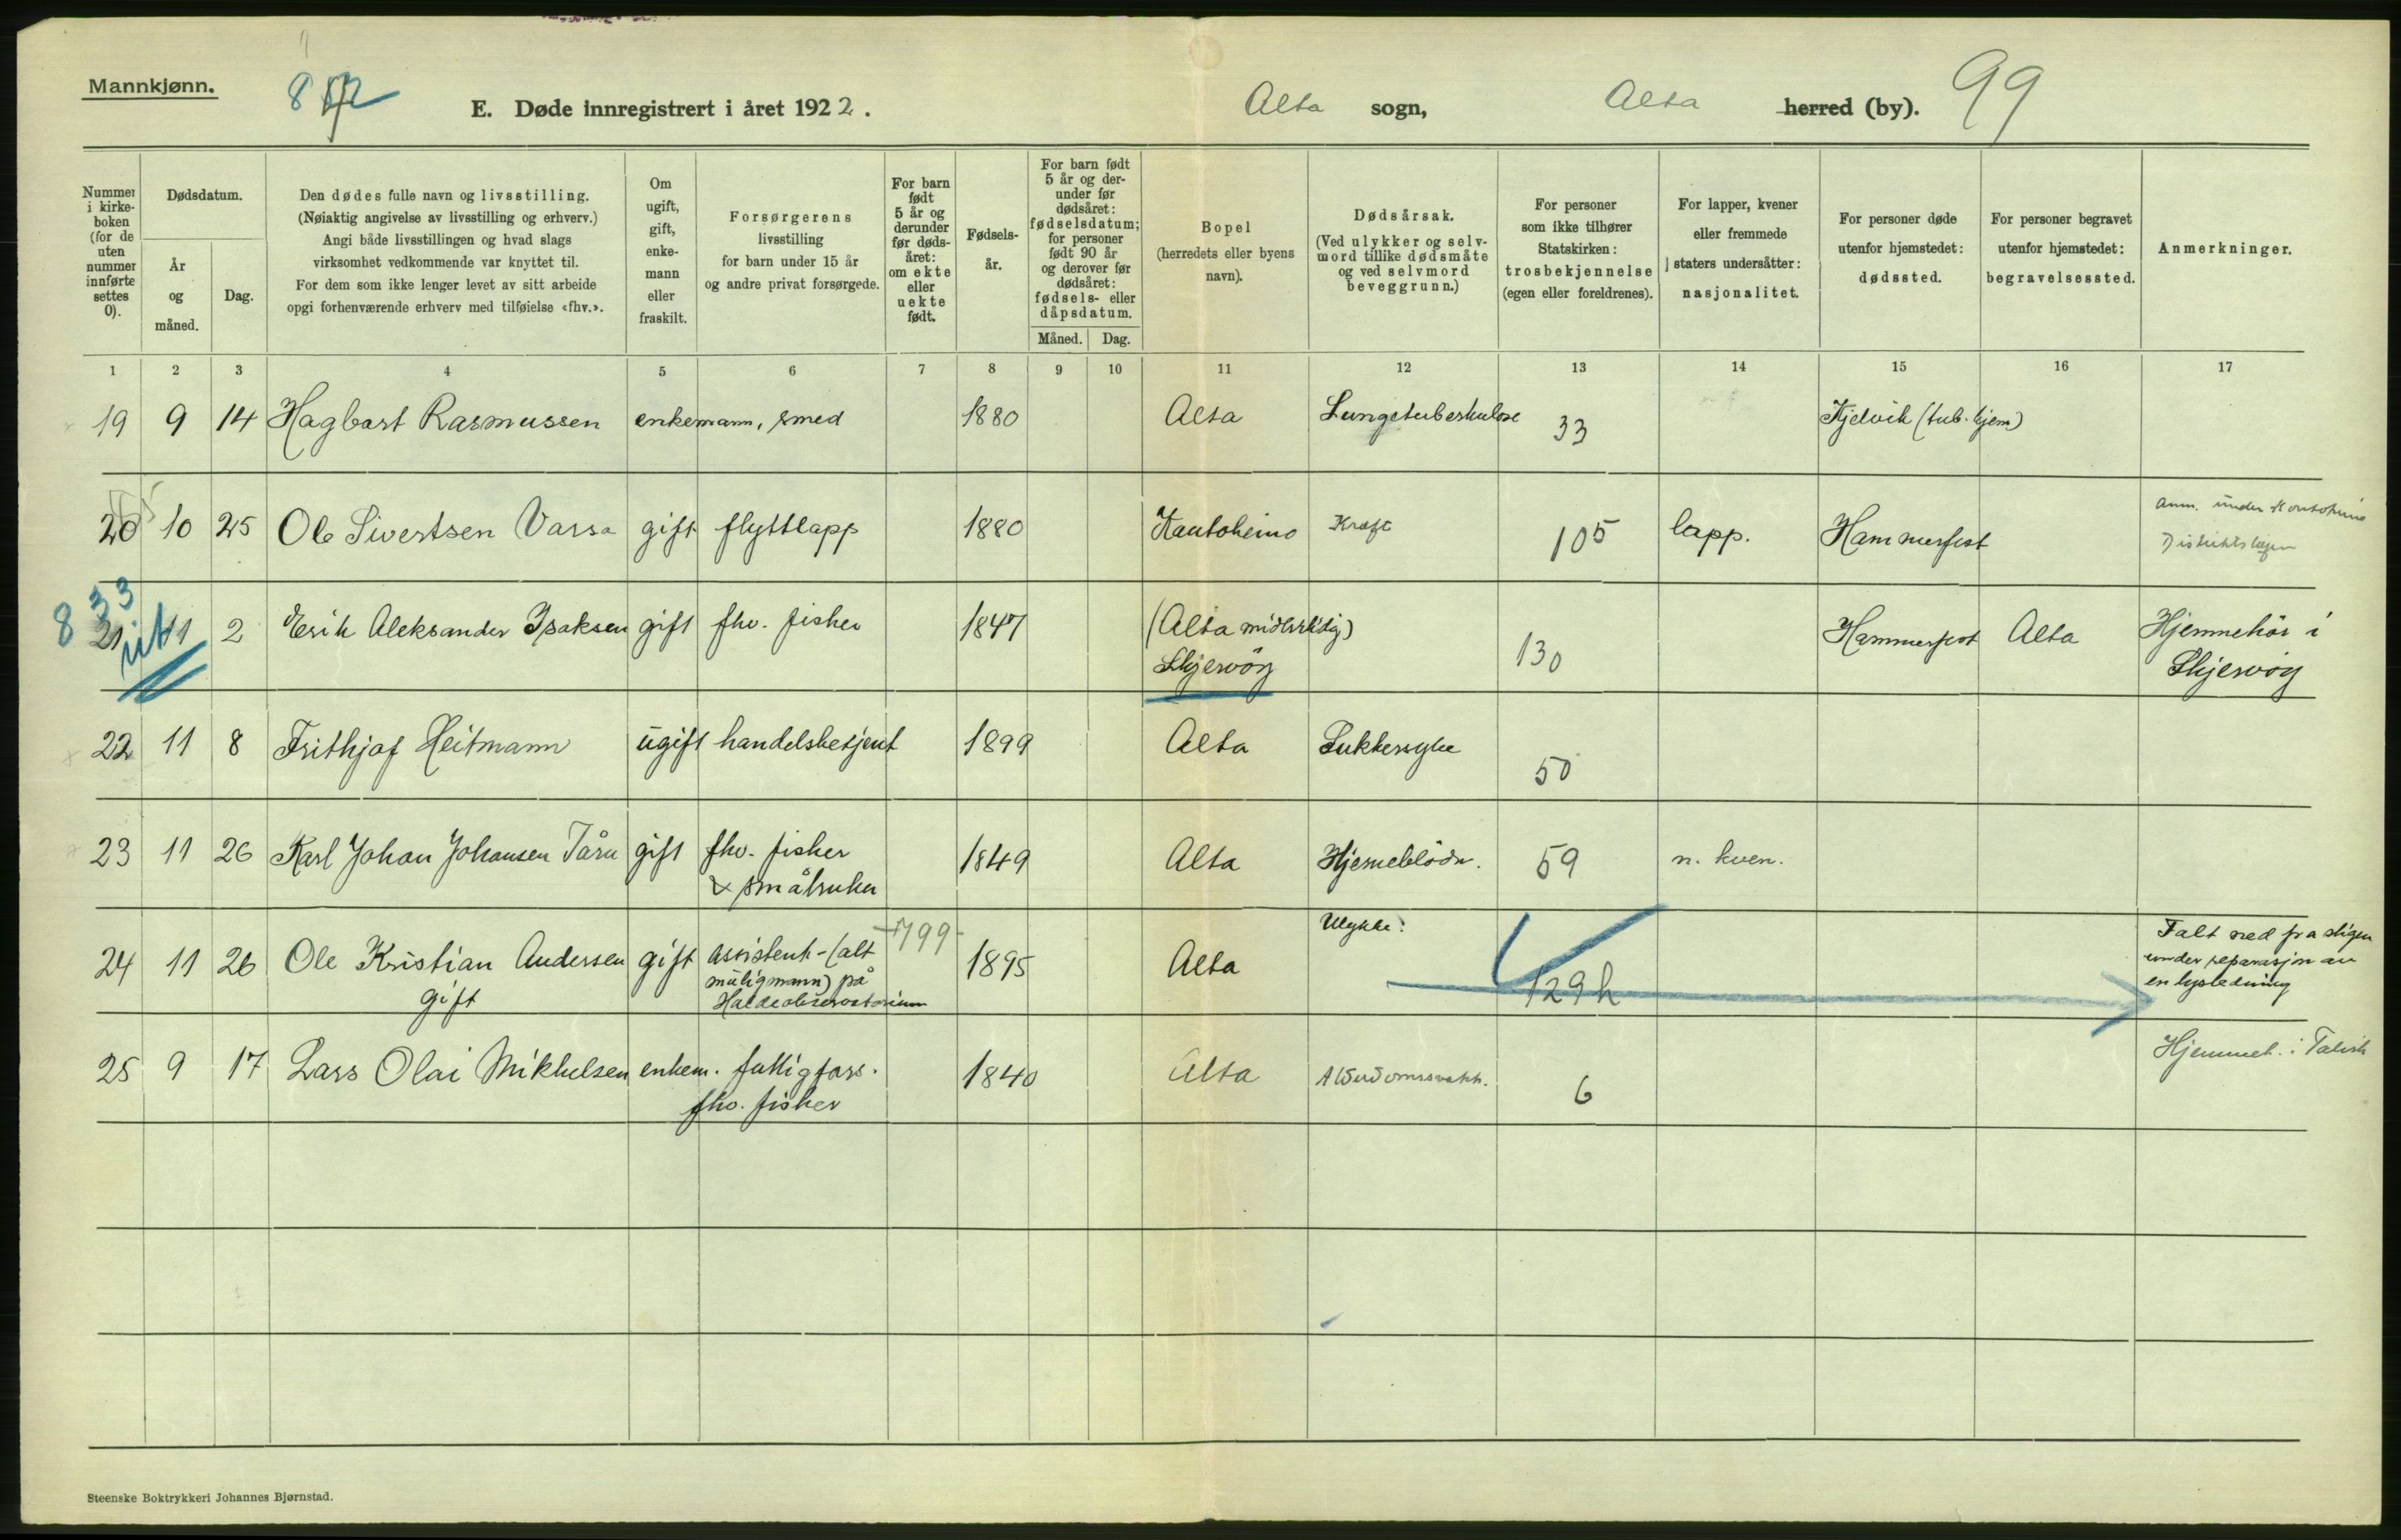 Mannkjønn.
E. Døde innregistrert i året 1922. Alta sogn, Alta herred (by). 99
Nummer i kirkeboken (for de uten nummer innførte settes 0).
Dødsdatum.
År og måned.
Dag.
Den dødes fulle navn og livsstilling.
(Nøiaktig angivelse av livsstilling og erhverv.)
Angi både livsstillingen og hvad slags
virksomhet vedkommende var knyttet til.
For dem som ikke lenger levet av sitt arbeide
opgi forhenværende erhverv med tilføielse «fhv.».
Om ugift, gift, enkemann eller fraskilt.
Forsørgerens
livsstilling
for barn under 15 år
og andre privat forsørgede.
For barn født 5 år og derunder før dødsåret: om ekte eller uekte født.
Fødselsår.
For barn født 5 år og derunder før dødsåret: fødselsdatum; for personer født 90 år og derover før dødsåret: fødsels- eller dåpsdatum.
Måned. Dag.
Bopel
(herredets eller byens
navn).
Dødsårsak.
(Ved ulykker og selvmord tillike dødsmåte
og ved selvmord
beveggrunn.)
For personer
som ikke tilhører
Statskirken:
trosbekjennelse
(egen eller foreldrenes).
For lapper, kvener
eller fremmede
staters undersåtter:
nasjonalitet.
For personer døde
utenfor hjemstedet:
dødssted.
For personer begravet
utenfor hjemstedet:
begravelsessted.
Anmerkninger.
1 2 3 4 5 6 7 8 9 10 11 12 13 14 15 16 17
19 9 14 Hagbart Rasmussen enkemann, smed 1880 Alta Lungetuberkulose 33 Kjelvik (tub. hjem)
20 10 25 Ole Sivertsen Varsa gift flyttlapp 1880 Kautokeino Kræft 105 lapp. Hammerfest anm. under Kautokeino
Distriktslægen
8 33
21 11 2 Erik Aleksander Isaksen gift fhv. fisker 1847 (Alta midlertidig) 130 Hammerfest Alta Hjemmehör i
Skjervöy Skjervöy
22 11 8 Frithjof Heitmann ugift handelsbetjent 1899 Alta Sukkersyke 50
23 11 26 Karl Johan Johansen Tåru gift fhv. fisker 1849 Alta Hjerneblödn. 59 n. kven.
& småbruker
24 11 26 Ole Kristian Andersen gift assistent-(alt 1799 1895 Alta Ulykke: 129h Falt ned fra stigen
gift muligmann) på under reparasjon av
Haldeobservatorium en lysledning
25 9 17 Lars Olai Mikkelsen enkem. fattigfors. 1840 Alta Alderdomssvakh. 6 Hjemmeh. i Talvik
fhv. fisker
Steenske Boktrykkeri Johannes Bjørnstad.